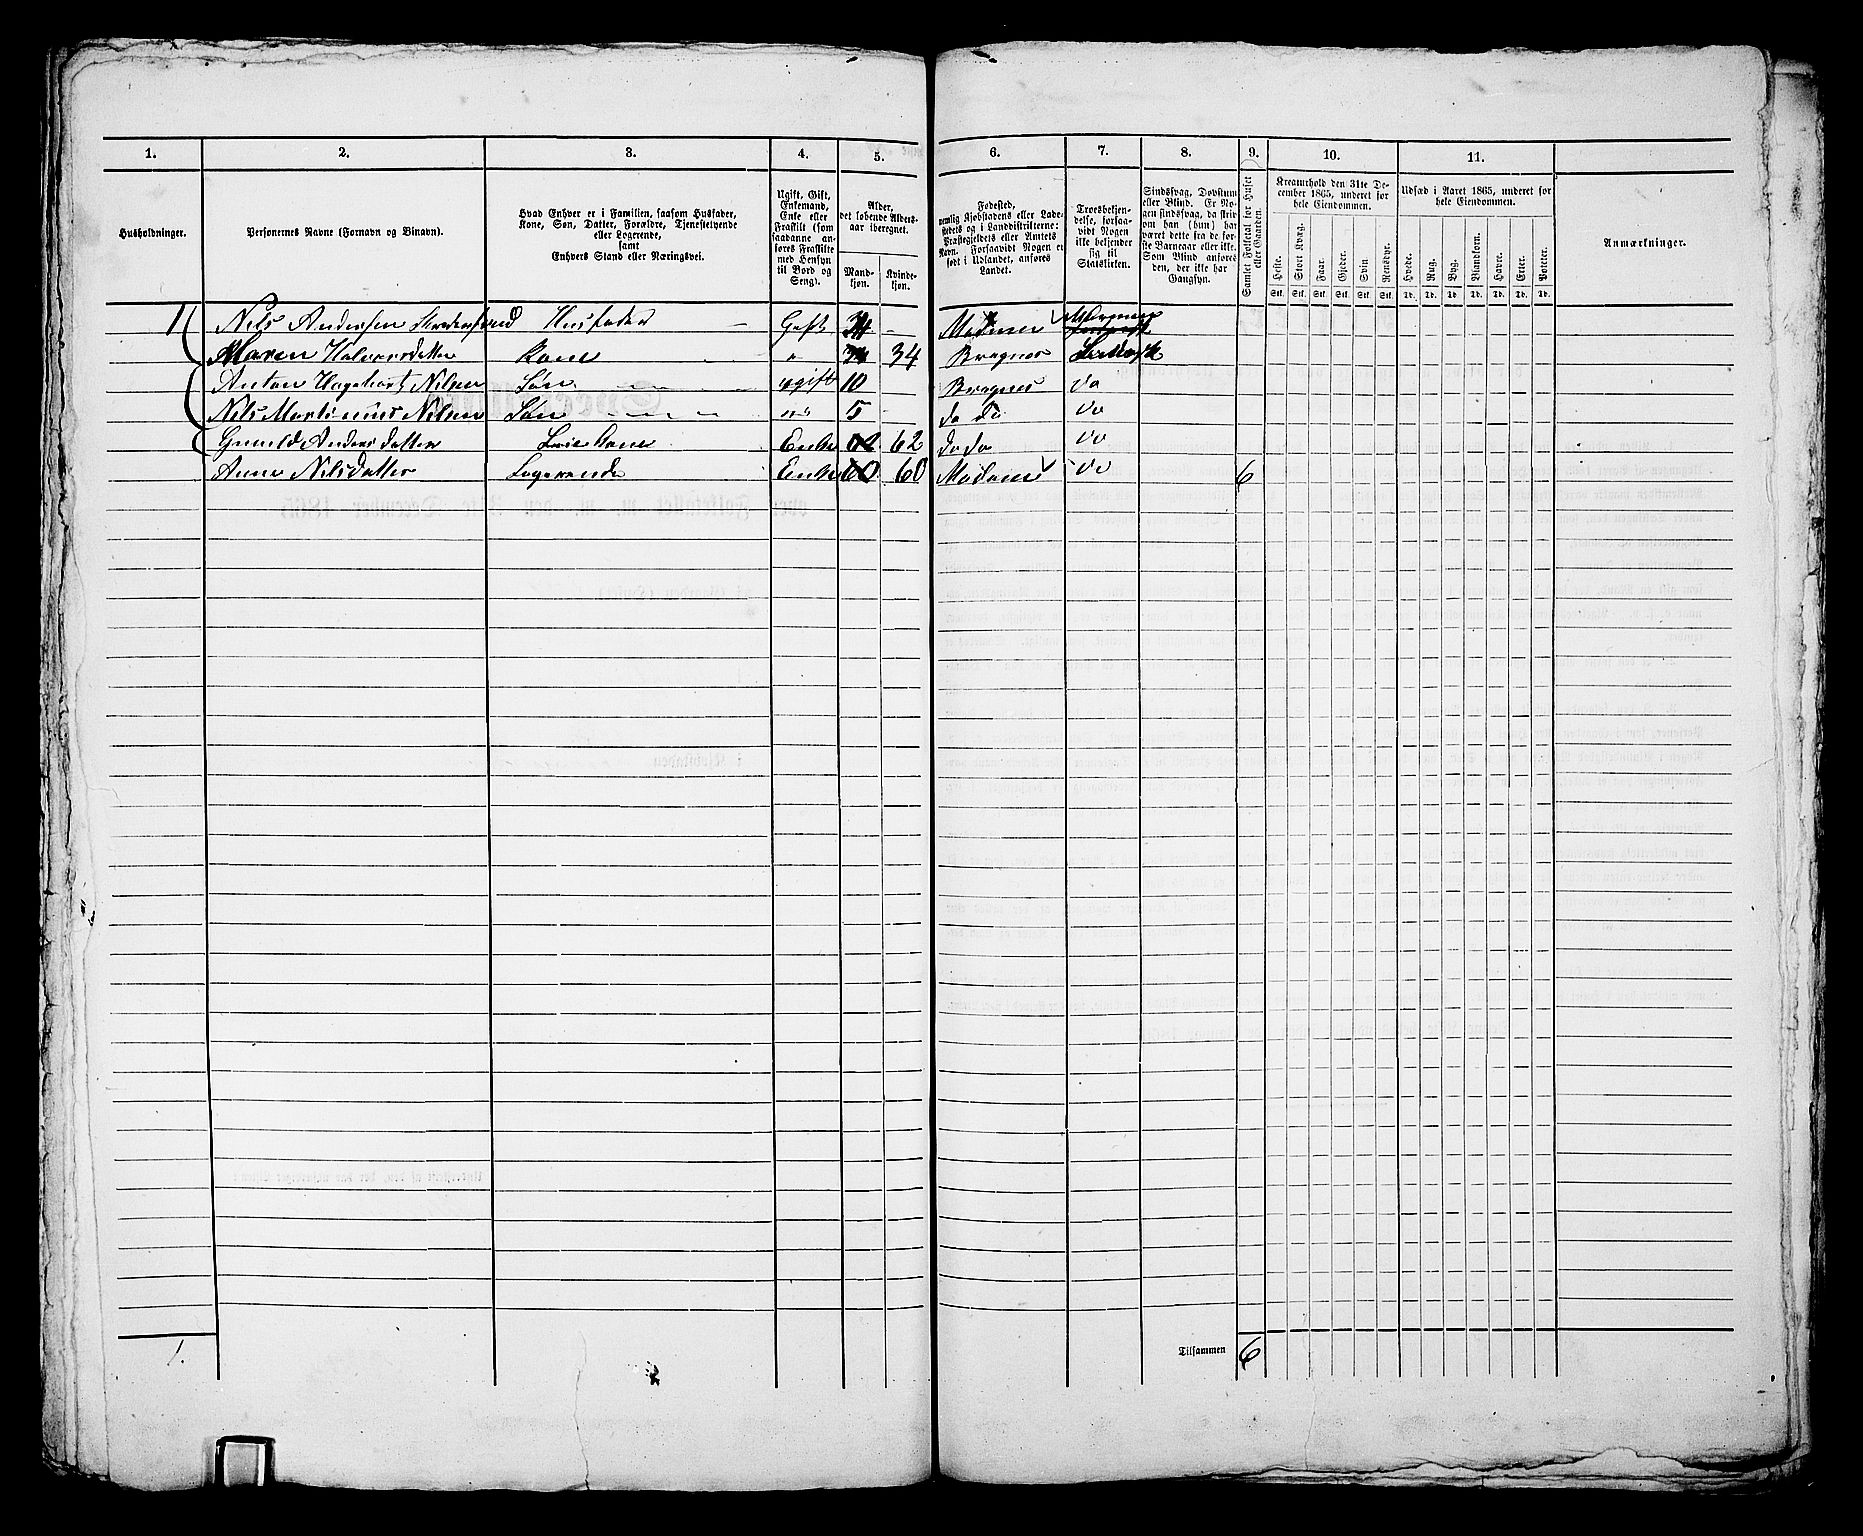 1. 2. 3. 4. 5. 6. 7. 8. 9. 10. 11.
Husholdninger.
Personernes Navne (Fornavn og Binavn).
Hvad Enhver er i Familien, saasom Husfader,
Kone, Søn, Datter, Forældre, Tjenestetyende
eller Logerende,
samt
Enhvers Stand eller Næringsvei.
Ugift, Gift,
Enkemand,
Enke eller
Fraskilt (som
saadanne an-
føres Fraskilte
med Hensyn
til Bord og
Seng).
Alder,
det løbende Alders-
aar iberegnet.
Mand-
kjøn.
Kvinde-
kjøn.
Fødested,
nemlig Kjøbstadens eller Lade-
stedets og i Landdistrikterne:
Præstegjeldets eller Amtets
Navn. Forsaavidt Nogen er
født i Udlandet, anføres
Landet.
Troesbekjen-
delse, forsaa-
vidt Nogen
ikke bekjender
sig til
Statskirken.
Sindssvag, Døvstum
eller Blind. (Er No-
gen sindssvag, da skriv
om han (hun) har
været dette fra de før-
ste Barneaar eller ikke.
Som Blind anføres
den, der ikke har
Gangsyn.
Samlet Folketal for Huset
eller Gaarden.
Kreaturhold den 31te De-
cember 1865, underet for
hele Eiendommen.
Heste. Stort Kvæg. Faar. Gjeder. Svin. Rensdyr.
Stk. Stk. Stk. Stk. Stk. Stk.
Udsæd i Aaret 1865, underet for
hele Eiendommen.
Hvede. Rug. Byg. Blandkorn. Havre. Erter. Poteter.
Td. Td. Td. Td. Td. Td. Td.
Anmærkninger.
1 Nils Andersen Husfader Gift Modum
Maren Halvorsdatter Kone " 34 Bragnes Luthersk
Anton Hagebart Nilsen Søn ugift 10 Bragnes do
Nils Martinius Nilsen Søn "" 5 do do do
Gunild Anders datter Enke 62 do do do
Anne Nilsdatter Logerende Enke 60 Modum do 6
1. Tilsammen 6